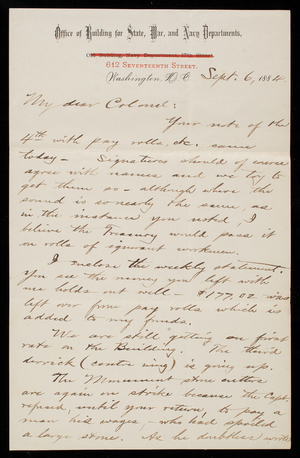 Office of Building for State, War, and Navy Departments,
612 SEVENTEENTH STREET.
Washington, D.C. Sept. 6, 1884.
My dear Colonel:
Your note of the
4th with pay rolls, &c. came
today — Signatures should of course
agree with names and we try to
get them so — although where the
sound is so nearly the same, as
in the instance you noted, I
believe the Treasury would pass it
on rolls of ignorant workmen.
I inclose the weekly statement.
You see the money you left with
me holds out well — $177.02 was
left over from pay rolls which is
added to my funds.
We are still getting on first
rate on the Building. The third
derrick (centre wing) is going up.
The Monument stone cutters
are again on strike because the Capt.
refused, until your return, to pay a
man his wages — who had spoiled
a large stone. As he doubtless writes